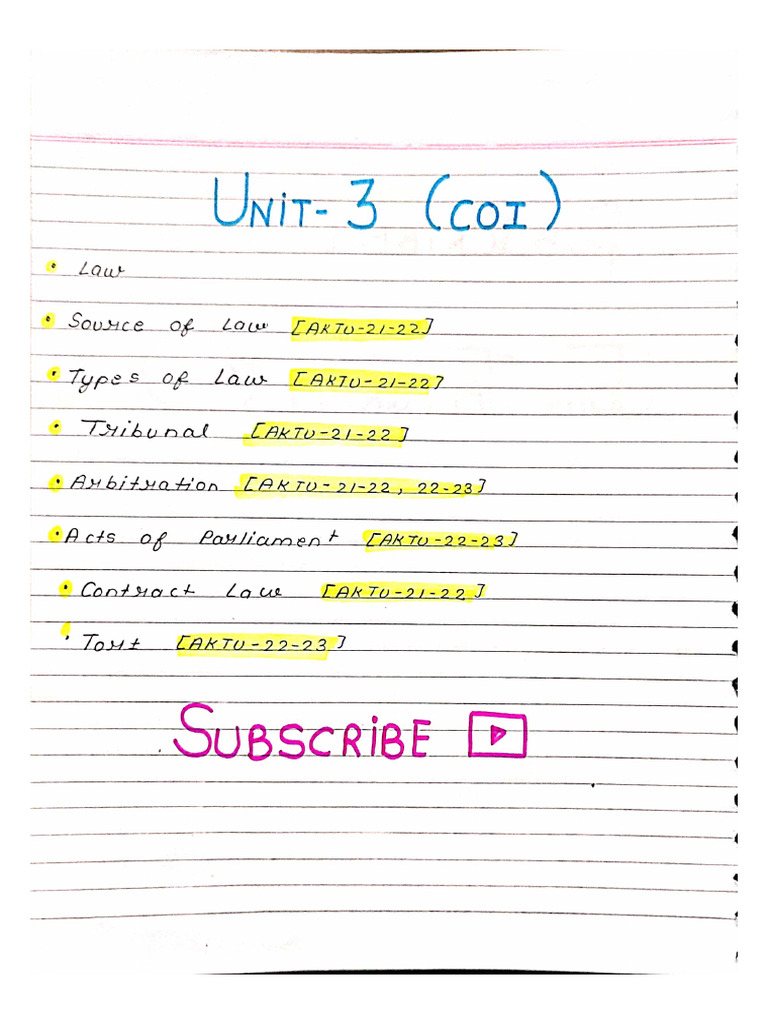 UNiT- 3 (COI)
• Law
• Source of Law [AKTU-21-22]
• Types of Law [AKTU-21-22]
• Tribunal [AKTU-21-22]
• Arbitration [AKTU-21-22, 22-23]
• Acts of Parliament [AKTU-22-23]
• Contract Law [AKTU-21-22]
• Tort [AKTU-22-23]
SUBSCRiBE